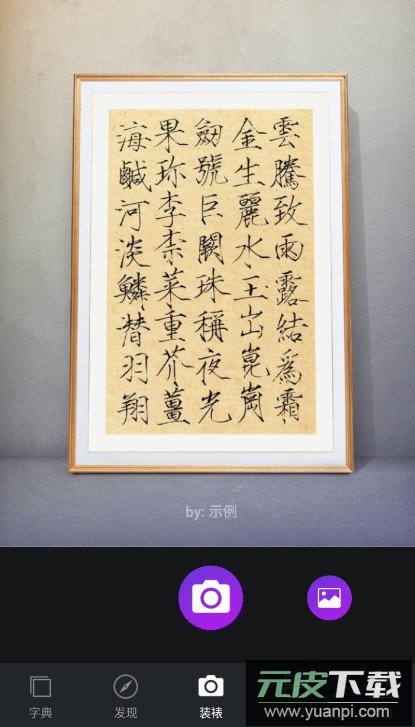 雲騰致雨露結爲霜
金生麗水玉出崑崗
劔號巨闕珠稱夜光
果珎李柰菜重芥薑
海鹹河淡鱗潛羽翔
by: 示例
字典
发现
装裱
元皮下载
www.yuanpi.com